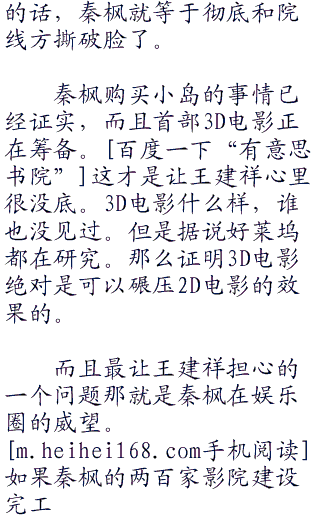 的话，秦枫就等于彻底和院
线方撕破脸了。
秦枫购买小岛的事情已
经证实，而且首部3D电影正
在筹备。[百度一下“有意思
书院”]这才是让王建祥心里
很没底。3D电影什么样，谁
也没见过。但是据说好莱坞
都在研究。那么证明3D电影
绝对是可以碾压2D电影的效
果的。
而且最让王建祥担心的
一个问题那就是秦枫在娱乐
圈的威望。
[m.heihei168.com手机阅读]
如果秦枫的两百家影院建设
完工